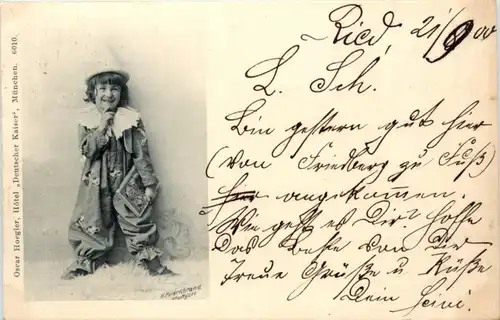 Oscar Hoegler, Hôtel „Deutscher Kaiser“, München. 6010.
Ried, 21/9 00
L. Sch.
Bin gestern gut hier
(von Friedberg zu Fuß)
hier angekommen.
Wie geht es Dir? Hoffe
das Beste von Dir
Treue Grüße u. Küße
Dein